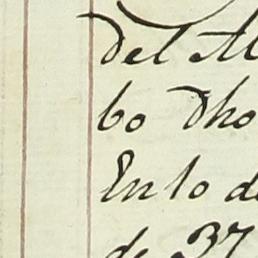 del M
bo dho
En lo d
de 37